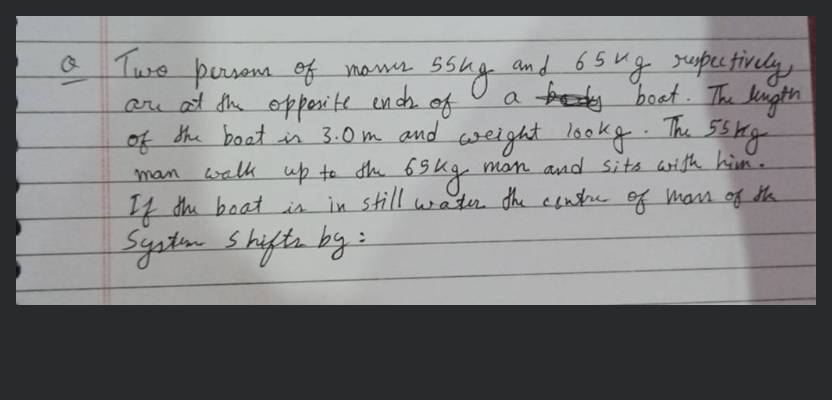 Q Two persons of masses 55kg and 65kg respectively,
are at the opposite ends of a boat. The length
of the boat is 3.0m and weight 100kg. The 55kg
man walk up to the 65kg man and sits with him.
If the boat is in still water the centre of mass of the
System shifts by: